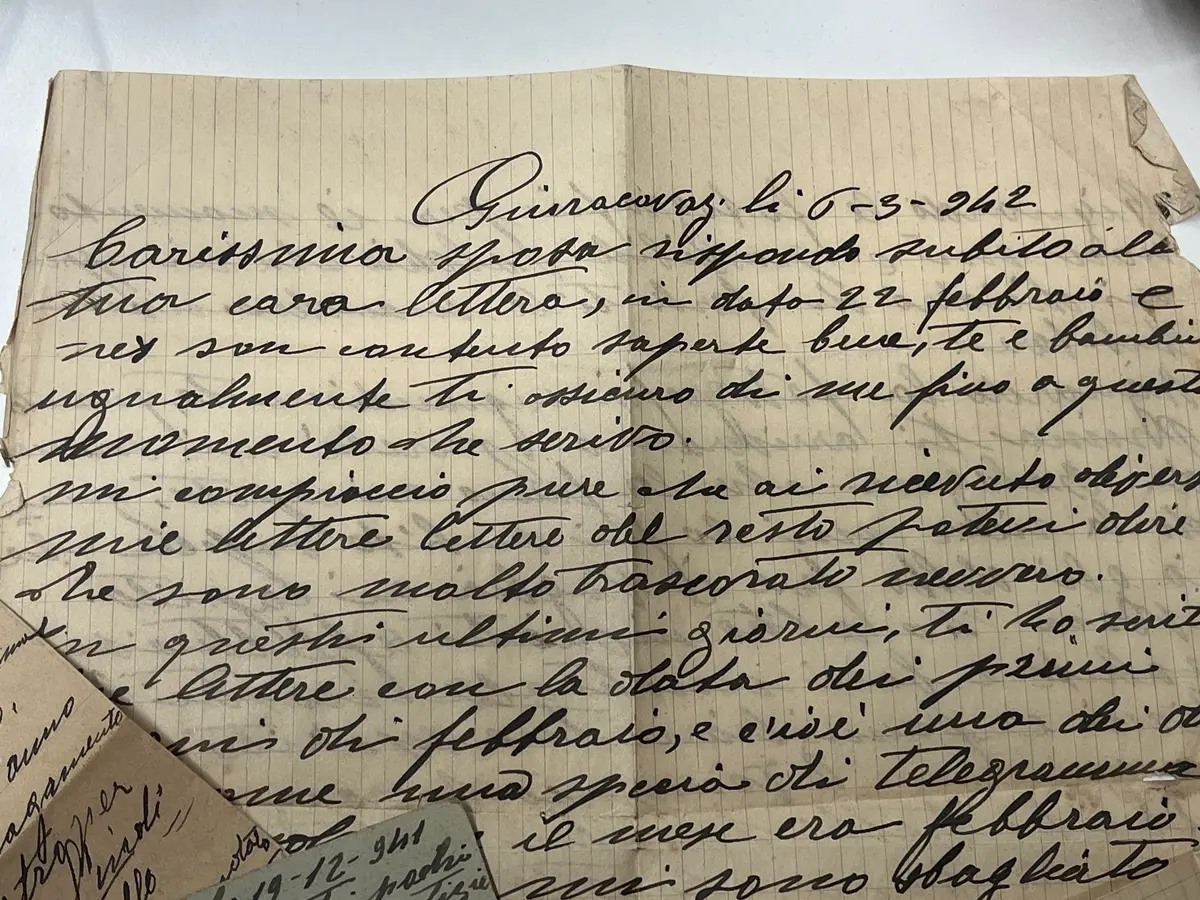 li 6-3-942
Carissima sposa rispondo subito ala
tua cara lettera, in data 22 febbraio e
son contento saperte bene, te e bambin
ugualmente ti assicuro di me fino a quest
momento che scrivo.
mi compiaccio pure che ai ricevuto divers
mie lettere lettere del resto potevi dire
che sono molto trascorato nevvero.
In questi ultimi giorni, ti ho scrit
lettere con la data dei primi
di febbraio, e cioè una di
una specia di telegramma
il mese era febbraio
mi sono sbagliato
anno
agamento
per
19-12-941